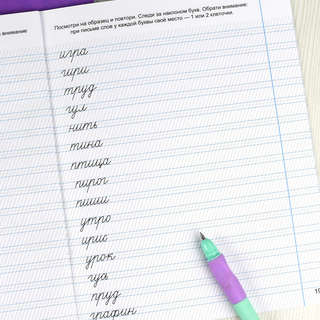 внимание
Посмотри на образец и повтори. Следи за наклоном букв. Обрати внимание:
при письме слов у каждой буквы своё место — 1 или 2 клеточки.
игра
гири
труд
гул
нить
тина
птица
пирог
пиши
утро
ирис
урок
гуа
пруд
графин